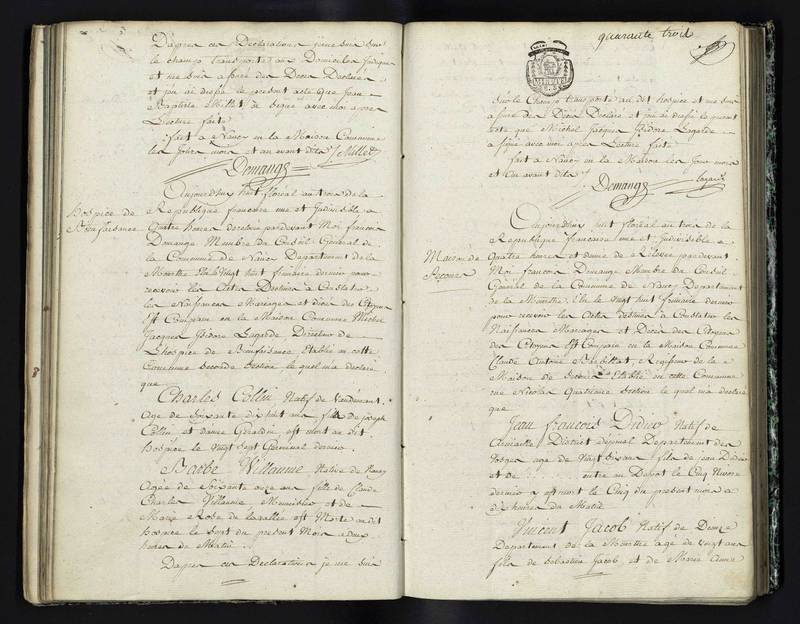 D'après ces Déclarations je me suis sur
le champ transporté au Domicile
et me suis assuré des Décès Déclarés
et j'en ai dressé le présent acte que jean
Baptiste Millet a signé avec moi après
Lecture faite
fait à Nancy en la Maison Commune
les Jour mois et an avant dits Millet
Demange
Hospice de
Bienfaisance
Aujourd'huy huit floréal an trois de la
République francaise une et Indivisible, a
Quatre heures de relevée pardevant Moi françois
Demange Membre du Conseil General de
la Commune de Nancy Departement de la
Meurthe Elu le Vingt huit frimaire dernier pour
recevoir les Actes Destinés a Constater
les Naissances Mariages et Décès des Citoyens
Est Comparu en la Maison Commune Michel
Jacques Isidore Lagarde, Directeur de
L'hospice de Bienfaisance Etabli en cette
Commune Seconde Section lequel m'a declaré
que
Charles Collin Natif de Vaudémont
Agé de Soixante dix huit ans fils de joseph
Collin et d'anne Gérardin est mort au dit
hospice le Vingt Sept Germinal dernier
Barbe Villaume Native de Nancy
Agée de Soixante onze ans fille de Claude
Charles Villaume, Menuisier et de
Marie Rose de Lavallée est Morte au dit
hospice le Sept du présent Mois a deux
heures du Matin
D'après ces Declarations je me suis
quarante trois
sur le Champ transporté au dit hospice et me suis
assuré des Décès Déclarés et j'en ai dressé le présent
acte que Michel Jacques Isidore Lagarde
a signé avec moi après Lecture faite
fait à Nancy en la Maison les Jour mois
et an avant dits
Demange
Maison de
Secours
Aujourd'huy huit floréal an trois de la
République francaise une et indivisible a
Quatre heures et demie de Relevée pardevant
Moi francois Demange Membre du Conseil
General de la Commune de Nancy Departement
de la Meurthe Elu le Vingt huit frimaire dernier
pour recevoir les Actes destinés a Constater les
Naissances Mariages et Decès des Citoyens
Est Comparu en la Maison Commune
Claude Antoine, Regisseur de la
Maison de Secours Etablie en cette Commune
rue Nicolas Quatrieme Section lequel m'a declaré
que
Jean francois Didier Natif de
District d'epinal Departement des
Vosges agé de Vingt Six ans fils de jean Didier
et de entré au Dépôt le Cinq Nivose
dernier y est mort le Cinq du present mois a
dix heures du Matin
Vincent Jacob Natif de Deuxe
Departement de la Meurthe agé de Vingt ans
fils de Sebastien Jacob, et de Marie Anne